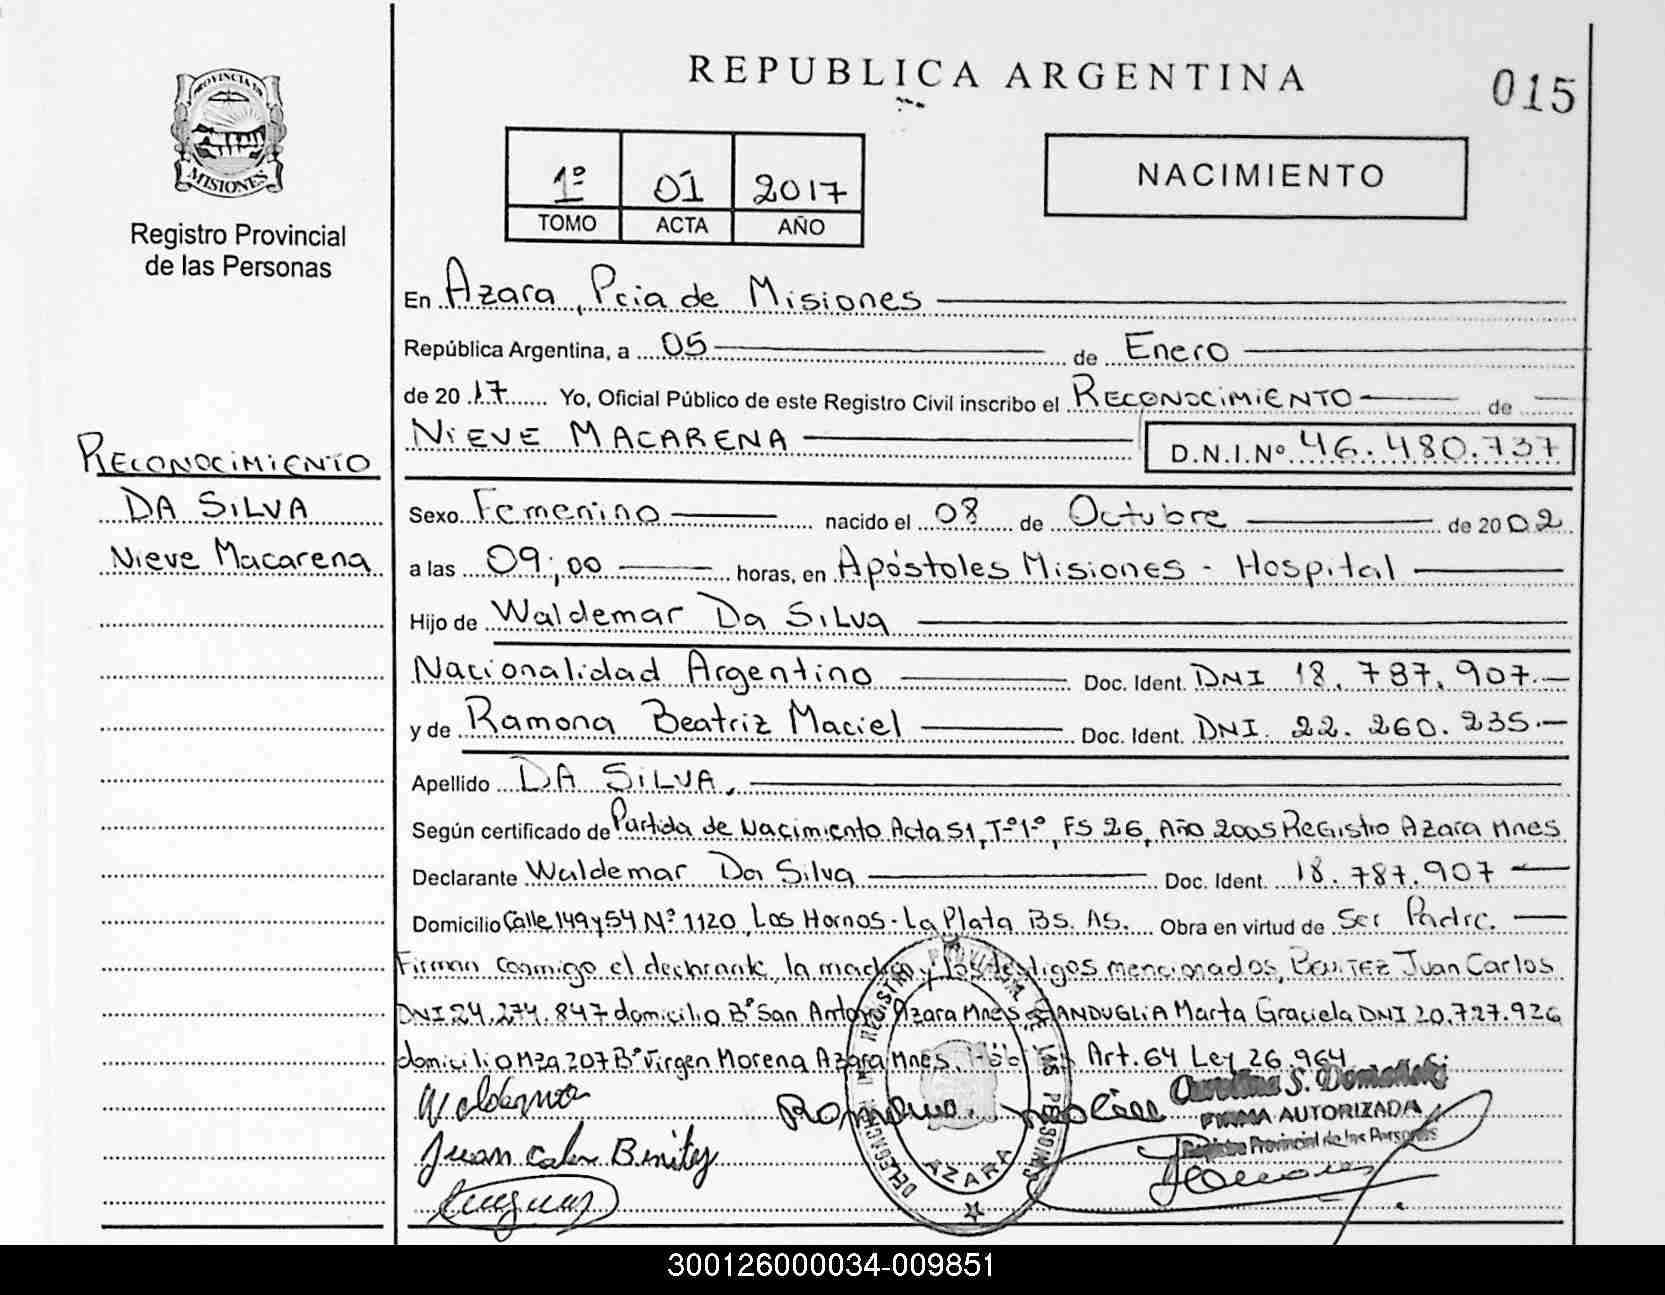 REPUBLICA ARGENTINA
015
PROVINCIA DE
MISIONES
Registro Provincial
de las Personas
1º 01 2017
TOMO ACTA AÑO
NACIMIENTO
En Azara, Pcia de Misiones
República Argentina, a 05 de Enero
de 2017 Yo, Oficial Público de este Registro Civil inscribo el RECONOCIMIENTO de
NIEVE MACARENA D.N.I.Nº 46.480.737
RECONOCIMIENTO
DA SILVA
Nieve Macarena
Sexo Femenino nacido el 08 de Octubre de 2002
a las 09:00 horas, en Apóstoles Misiones - Hospital
Hijo de Waldemar Da Silva
Nacionalidad Argentino Doc. Ident. DNI 18.787.907.-
y de Ramona Beatriz Maciel Doc. Ident. DNI. 22.260.235.-
Apellido DA SILVA.
Según certificado de Partida de Nacimiento Acta 51, Tº1º, FS 26, Año 2005 Registro Azara Mnes
Declarante Waldemar Da Silva Doc. Ident. 18.787.907
Domicilio Calle 149 y 54 Nº 1120, Los Hornos - La Plata BS. AS. Obra en virtud de Ser Padre.
Firman conmigo el declarante, la madre y los testigos mencionados, BENITEZ Juan Carlos
DNI 24.274.847 domicilio Bº San Antonio Azara Mnes SANDUGLIA Marta Graciela DNI 20.727.926
domicilio Mza 207 Bº Virgen Morena Azara Mnes. Art. 64 Ley 26.964
Waldemar
Ramona Maciel
Carolina S. Domañski
FIRMA AUTORIZADA
Registro Provincial de las Personas
Juan Carlos Benitez
DELEGACION REGISTRO PROVINCIAL DE LAS PERSONAS
AZARA
300126000034-009851